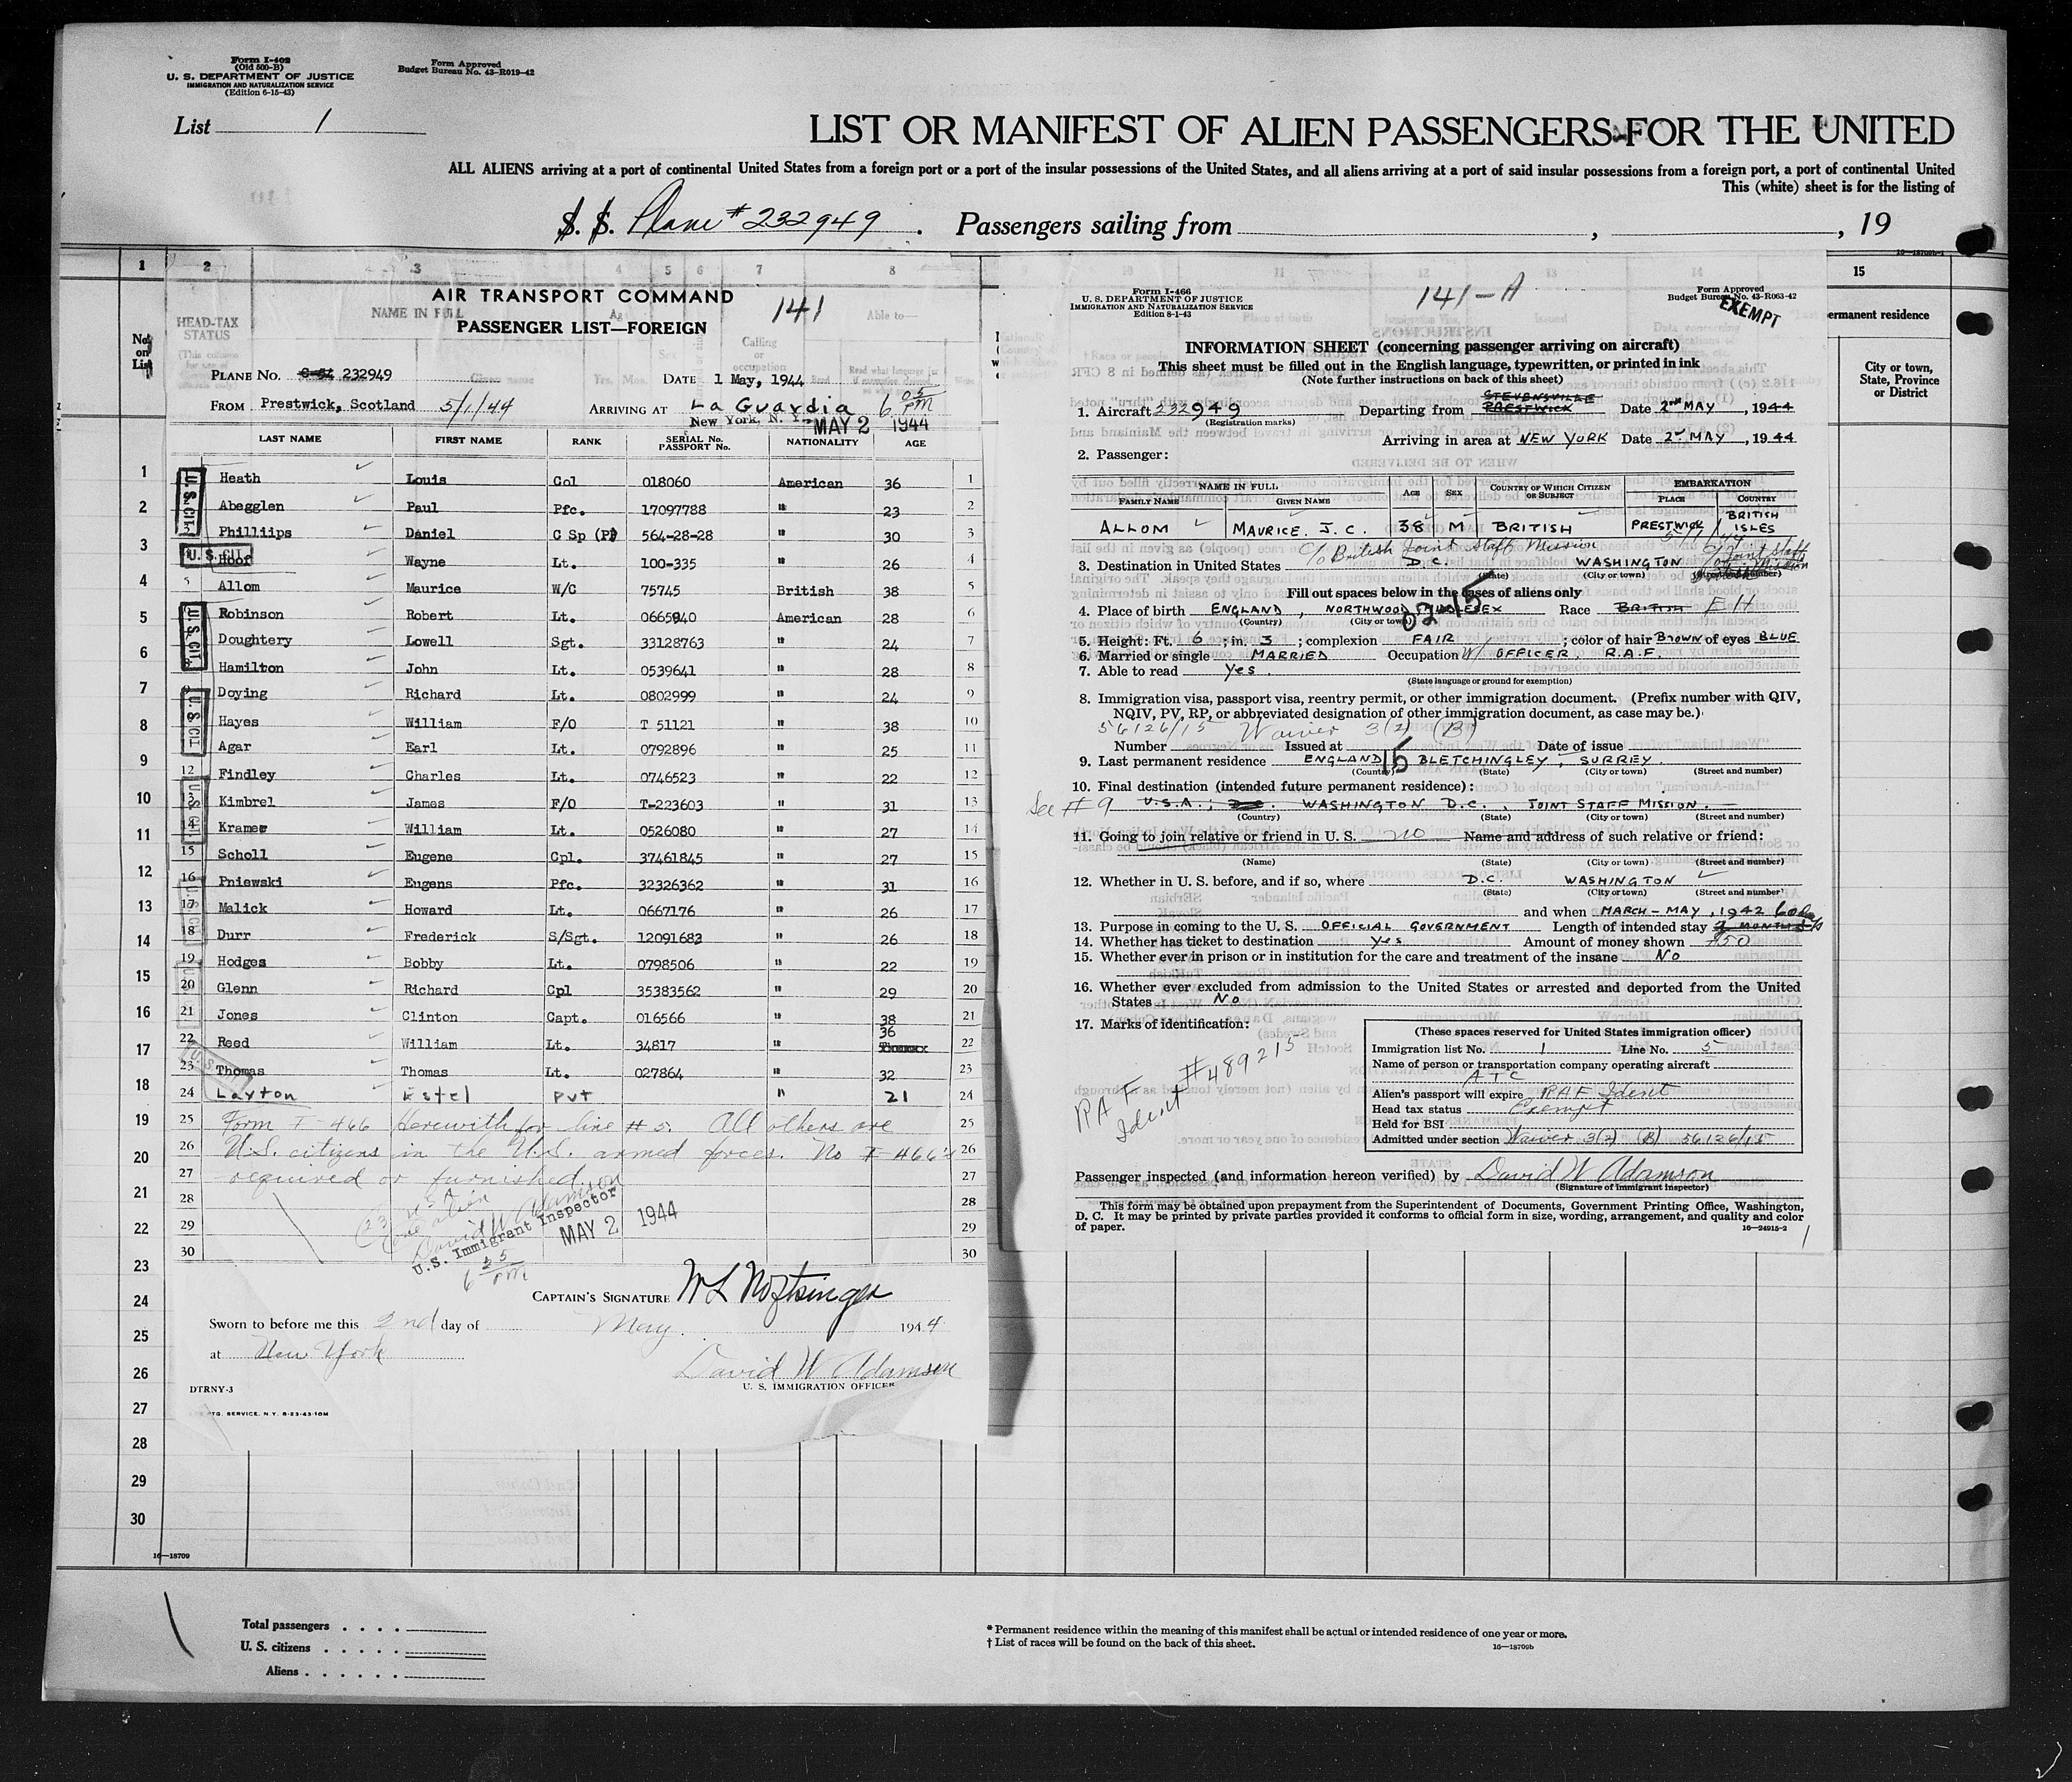 Form I-402
(Old 500-B)
U. S. DEPARTMENT OF JUSTICE
IMMIGRATION AND NATURALIZATION SERVICE
(Edition 6-15-43)
Form Approved
Budget Bureau No. 43-R019-42
List 1
LIST OR MANIFEST OF ALIEN PASSENGERS FOR THE UNITED
ALL ALIENS arriving at a port of continental United States from a foreign port or a port of the insular possessions of the United States, and all aliens arriving at a port of said insular possessions from a foreign port, a port of continental United
This (white) sheet is for the listing of
S. S. Plane # 232949 . Passengers sailing from , , 19
1 2 3 4 5 6 7 8
No. on List
HEAD-TAX STATUS
NAME IN FULL
AIR TRANSPORT COMMAND
141
PASSENGER LIST—FOREIGN
PLANE NO. C-54 232949 DATE 1 May, 1944
FROM Prestwick, Scotland 5/1/44 ARRIVING AT La Guardia 6 05 PM
New York, N. Y. MAY 2 1944
LAST NAME FIRST NAME RANK SERIAL No. PASSPORT No. NATIONALITY AGE
1 Heath Louis Col 018060 American 36 1
2 Abegglen Paul Pfc. 17097788 " 23 2
Philliips Daniel C Sp (P) 564-28-28 " 30 3
3 Hoof Wayne Lt. 100-335 " 26 4
4 5 Allom Maurice W/C 75745 British 38 5
5 Robinson Robert Lt. 0665940 American 28 6
Doughtery Lowell Sgt. 33128763 " 24 7
6 Hamilton John Lt. 0539641 " 28 8
7 Doying Richard Lt. 0802999 " 24 9
8 Hayes William F/O T 51121 " 38 10
Agar Earl Lt. 0792896 " 25 11
9 12 Findley Charles Lt. 0746523 " 22 12
10 13 Kimbrel James F/O T-223603 " 31 13
11 14 Kramer William Lt. 0526080 " 27 14
15 Scholl Eugene Cpl. 37461845 " 27 15
12 16 Pniewski Eugens Pfc. 32326362 " 31 16
13 17 Malick Howard Lt. 0667176 " 26 17
14 18 Durr Frederick S/Sgt. 12091683 " 26 18
15 19 Hodges Bobby Lt. 0798506 " 22 19
20 Glenn Richard Cpl 35383562 " 29 20
16 21 Jones Clinton Capt. 016566 " 38 21
17 22 Reed William Lt. 34817 " 36 22
23 Thomas Thomas Lt. 027864 " 32 23
18 24 Layton Estel Pvt " 21 24
19 25 Form I-466 Herewith for line # 5. All others are 25
20 26 U.S. citizens in the U.S. armed forces. No I-466's 26
27 required or furnished. 27
21 28 28
22 29 29
30 30
23 U.S. CIT.
23 U.S.
One alien
David W Adamson
U.S. Immigrant Inspector
MAY 2 1944
6 25 PM
24 CAPTAIN'S SIGNATURE
25 Sworn to before me this 2nd day of May. 1944
at New York
26 David W Adamson
U. S. IMMIGRATION OFFICER
DTRNY-3
27
28
29
30
16—18709
Form I-466
U. S. DEPARTMENT OF JUSTICE
IMMIGRATION AND NATURALIZATION SERVICE
Edition 8-1-43
141-A
Form Approved
Budget Bureau No. 43-R063-42
EXEMPT
INFORMATION SHEET (concerning passenger arriving on aircraft)
This sheet must be filled out in the English language, typewritten, or printed in ink
(Note further instructions on back of this sheet)
1. Aircraft 232949 Departing from STEVENSVILLE PRESTWICK Date 2nd MAY, 1944
(Registration marks)
Arriving in area at NEW YORK Date 2nd MAY, 1944
2. Passenger:
NAME IN FULL AGE SEX COUNTRY OF WHICH CITIZEN OR SUBJECT EMBARKATION
FAMILY NAME GIVEN NAME PLACE COUNTRY
ALLOM MAURICE. J.C. 38 M BRITISH PRESTWICK 5/1/44 BRITISH ISLES
c/o British Joint Staff Mission
3. Destination in United States D.C. WASHINGTON
(State) (City or town) (Street and number)
Fill out spaces below in the cases of aliens only
4. Place of birth ENGLAND, NORTHWOOD MIDDLESEX Race BRITISH
(Country) (City or town)
5. Height: Ft. 6; in. 3; complexion FAIR; color of hair BROWN of eyes BLUE
6. Married or single MARRIED Occupation W/ OFFICER, R.A.F.
7. Able to read Yes.
(State language or ground for exemption)
8. Immigration visa, passport visa, reentry permit, or other immigration document. (Prefix number with QIV, NQIV, PV, RP, or abbreviated designation of other immigration document, as case may be.)
56126/15 Waiver 3(2) (B)
Number Issued at Date of issue
9. Last permanent residence ENGLAND BLETCHINGLEY, SURREY.
(Country) (State) (City or town) (Street and number)
10. Final destination (intended future permanent residence):
See # 9 U.S.A.; WASHINGTON D.C., JOINT STAFF MISSION.
(Country) (State) (City or town) (Street and number)
11. Going to join relative or friend in U. S. no Name and address of such relative or friend:
(Name) (State) (City or town) (Street and number)
12. Whether in U. S. before, and if so, where D.C. WASHINGTON
(State) (City or town) (Street and number)
and when MARCH - MAY, 1942
13. Purpose in coming to the U. S. OFFICIAL GOVERNMENT Length of intended stay 60
14. Whether has ticket to destination Yes Amount of money shown 50
15. Whether ever in prison or in institution for the care and treatment of the insane No
16. Whether ever excluded from admission to the United States or arrested and deported from the United States No
17. Marks of identification:
RAF Ident #489215
(These spaces reserved for United States immigration officer)
Immigration list No. 1 Line No. 5
Name of person or transportation company operating aircraft
ATC
Alien's passport will expire RAF Ident
Head tax status Exempt
Held for BSI
Admitted under section Waiver 3(2) (B) 56126/15
Passenger inspected (and information hereon verified) by David W Adamson
(Signature of Immigrant Inspector)
This form may be obtained upon prepayment from the Superintendent of Documents, Government Printing Office, Washington, D. C. It may be printed by private parties provided it conforms to official form in size, wording, arrangement, and quality and color of paper.
16—24915-2
15
ermanent residence
City or town, State, Province or District
Total passengers
U. S. citizens
Aliens
* Permanent residence within the meaning of this manifest shall be actual or intended residence of one year or more.
† List of races will be found on the back of this sheet.
16—18709b